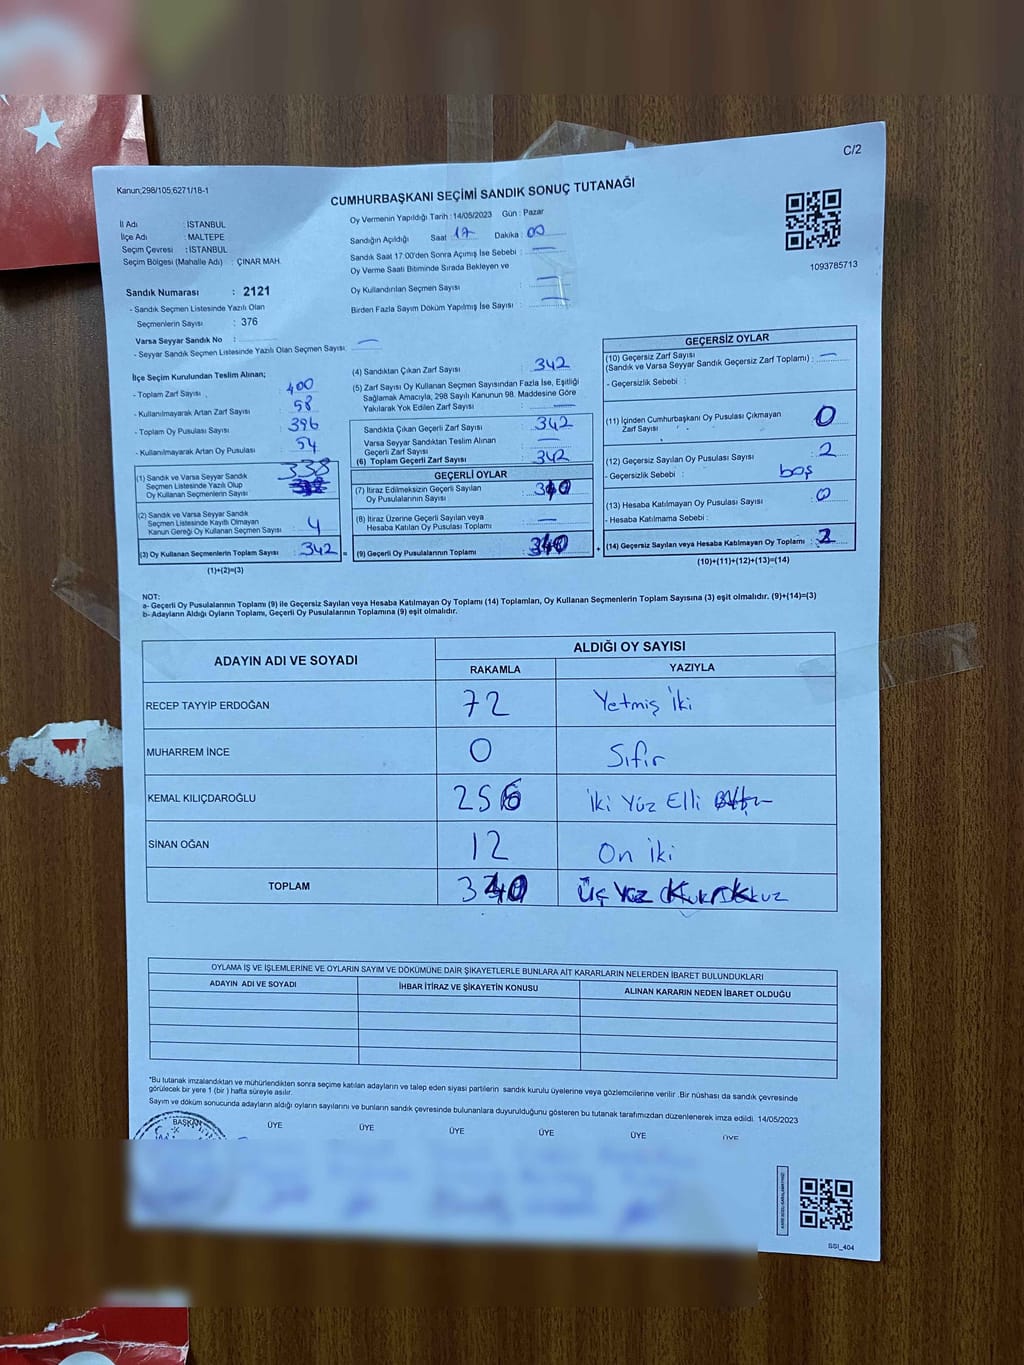 C/2
Kanun;298/105;6271/18-1
CUMHURBAŞKANI SEÇİMİ SANDIK SONUÇ TUTANAĞI
İl Adı : İSTANBUL
İlçe Adı : MALTEPE
Seçim Çevresi : İSTANBUL
Seçim Bölgesi (Mahalle Adı) : ÇINAR MAH.
Oy Vermenin Yapıldığı Tarih : 14/05/2023 Gün : Pazar
Sandığın Açıldığı Saat : 17 Dakika : 00
Sandık Saat 17:00'den Sonra Açımış İse Sebebi : —
Oy Verme Saati Bitiminde Sırada Bekleyen ve
Oy Kullandırılan Seçmen Sayısı : —
Birden Fazla Sayım Döküm Yapılmış İse Sayısı : —
1093785713
Sandık Numarası : 2121
- Sandık Seçmen Listesinde Yazılı Olan
Seçmenlerin Sayısı : 376
Varsa Seyyar Sandık No :
- Seyyar Sandık Seçmen Listesinde Yazılı Olan Seçmen Sayısı: —
İlçe Seçim Kurulundan Teslim Alınan;
- Toplam Zarf Sayısı : 400
- Kullanılmayarak Artan Zarf Sayısı : 58
- Toplam Oy Pusulası Sayısı : 396
- Kullanılmayarak Artan Oy Pusulası : 54
(1) Sandık ve Varsa Seyyar Sandık
Seçmen Listesinde Yazılı Olup
Oy Kullanan Seçmenlerin Sayısı : 338
(2) Sandık ve Varsa Seyyar Sandık
Seçmen Listesinde Kayıtlı Olmayan
Kanun Gereği Oy Kullanan Seçmen Sayısı : 4
(3) Oy Kullanan Seçmenlerin Toplam Sayısı : 342 =
(1)+(2)=(3)
(4) Sandıktan Çıkan Zarf Sayısı : 342
(5) Zarf Sayısı Oy Kullanan Seçmen Sayısından Fazla İse, Eşitliği
Sağlamak Amacıyla, 298 Sayılı Kanunun 98. Maddesine Göre
Yakılarak Yok Edilen Zarf Sayısı : —
Sandıkta Çıkan Geçerli Zarf Sayısı : 342
Varsa Seyyar Sandıktan Teslim Alınan
Geçerli Zarf Sayısı : —
(6) Toplam Geçerli Zarf Sayısı : 342
GEÇERLİ OYLAR
(7) İtiraz Edilmeksizin Geçerli Sayılan
Oy Pusulalarının Sayısı : 340
(8) İtiraz Üzerine Geçerli Sayılan veya
Hesaba Katılan Oy Pusulası Toplamı : —
(9) Geçerli Oy Pusulalarının Toplamı : 340 +
GEÇERSİZ OYLAR
(10) Geçersiz Zarf Sayısı
(Sandık ve Varsa Seyyar Sandık Geçersiz Zarf Toplamı) : —
- Geçersizlik Sebebi :
(11) İçinden Cumhurbaşkanı Oy Pusulası Çıkmayan
Zarf Sayısı : 0
(12) Geçersiz Sayılan Oy Pusulası Sayısı : 2
- Geçersizlik Sebebi : boş
(13) Hesaba Katılmayan Oy Pusulası Sayısı : 0
- Hesaba Katılmama Sebebi :
(14) Geçersiz Sayılan veya Hesaba Katılmayan Oy Toplamı : 2
(10)+(11)+(12)+(13)=(14)
NOT:
a- Geçerli Oy Pusulalarının Toplamı (9) ile Geçersiz Sayılan veya Hesaba Katılmayan Oy Toplamı (14) Toplamları, Oy Kullanan Seçmenlerin Toplam Sayısına (3) eşit olmalıdır. (9)+(14)=(3)
b- Adayların Aldığı Oyların Toplamı, Geçerli Oy Pusulalarının Toplamına (9) eşit olmalıdır.
ADAYIN ADI VE SOYADI ALDIĞI OY SAYISI
RAKAMLA YAZIYLA
RECEP TAYYİP ERDOĞAN 72 Yetmiş iki
MUHARREM İNCE 0 Sıfır
KEMAL KILIÇDAROĞLU 256 İki Yüz Elli
SİNAN OĞAN 12 On iki
TOPLAM 340 Üç Yüz
OYLAMA İŞ VE İŞLEMLERİNE VE OYLARIN SAYIM VE DÖKÜMÜNE DAİR ŞİKAYETLERLE BUNLARA AİT KARARLARIN NELERDEN İBARET BULUNDUKLARI
ADAYIN ADI VE SOYADI İHBAR İTİRAZ VE ŞİKAYETİN KONUSU ALINAN KARARIN NEDEN İBARET OLDUĞU
*Bu tutanak imzalandıktan ve mühürlendikten sonra seçime katılan adayların ve talep eden siyasi partilerin sandık kurulu üyelerine veya gözlemcilerine verilir .Bir nüshası da sandık çevresinde
görülecek bir yere 1 (bir ) hafta süreyle asılır.
Sayım ve döküm sonucunda adayların aldığı oyların sayılarını ve bunların sandık çevresinde bulunanlara duyurulduğunu gösteren bu tutanak tarafımızdan düzenlenerek imza edildi. 14/05/2023
BAŞKAN ÜYE ÜYE ÜYE ÜYE ÜYE ÜYE
SSI_404